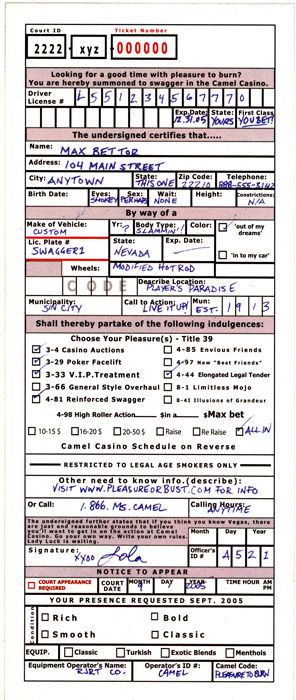 Court ID Ticket Number
2222 - xyz - 000000
Looking for a good time with pleasure to burn?
You are hereby summoned to swagger in the Camel Casino.
Driver
License # L 5 5 1 2 3 4 5 6 7 7 7 0
Exp. Date: State: First Class
12.31.05 YOURS YOU BET!
The undersigned certifies that.....
Name: MAX BETTOR
Address: 104 MAIN STREET
City: State: Zip Code: Telephone:
ANYTOWN THIS ONE 22210 888-555-3142
Birth Date: Eyes: Sex: Wait: Height: Constrictions:
SMOKEY PERHAPS NONE N/A
By way of a
Make of Vehicle: Yr.: Body Type: Color: 'out of my
CUSTOM ? SLAMMIN'! dreams'
Lic. Plate # State: Exp. Date:
SWAGGER1 NEVADA 'in to my car'
Wheels: MODIFIED HOTROD
CODE Describe Location:
PLAYER'S PARADISE
Municipality: Call to Action: Mun:
SIN CITY LIVE IT UP! EST. 1 9 1 3
Shall hereby partake of the following indulgences:
Choose Your Pleasure(s) - Title 39
3-4 Casino Auctions 4-85 Envious Friends
3-29 Poker Facelift 4-97 New "Best Friends"
3-33 V.I.P. Treatment 4-44 Elongated Legal Tender
3-66 General Style Overhaul 8-1 Limitless Mojo
4-81 Reinforced Swagger 8-41 Illusions of Grandeur
4-98 High Roller Action $in a $Max bet
10-15 $ 16-20 $ 20-50 $ Raise Re Raise ALL IN
Camel Casino Schedule on Reverse
RESTRICTED TO LEGAL AGE SMOKERS ONLY
Other need to know info.(describe):
VISIT WWW.PLEASUREORBUST.COM FOR INFO
Or Call: Calling Hours:
1.866.MS.CAMEL ANYTIME
The undersigned further states that if you think you know Vegas, there
are just and reasonable grounds to believe
you'll want to get in on the action at Camel
Casino. Go your own way. Write your own rules.
Lady Luck is waiting.
Month Day Year
Signature: Officer's
XYOO Lola ID # A 5 2 1
NOTICE TO APPEAR
COURT APPEARANCE REQUIRED COURT DATE MONTH DAY YEAR TIME HOUR AM PM
9 2005
YOUR PRESENCE REQUESTED SEPT. 2005
Condition
Rich Bold
Smooth Classic
EQUIP. Classic Turkish Exotic Blends Menthols
Equipment Operator's Name: Operator's ID #: Camel Code:
RJRT CO. CAMEL PLEASURE TO BURN